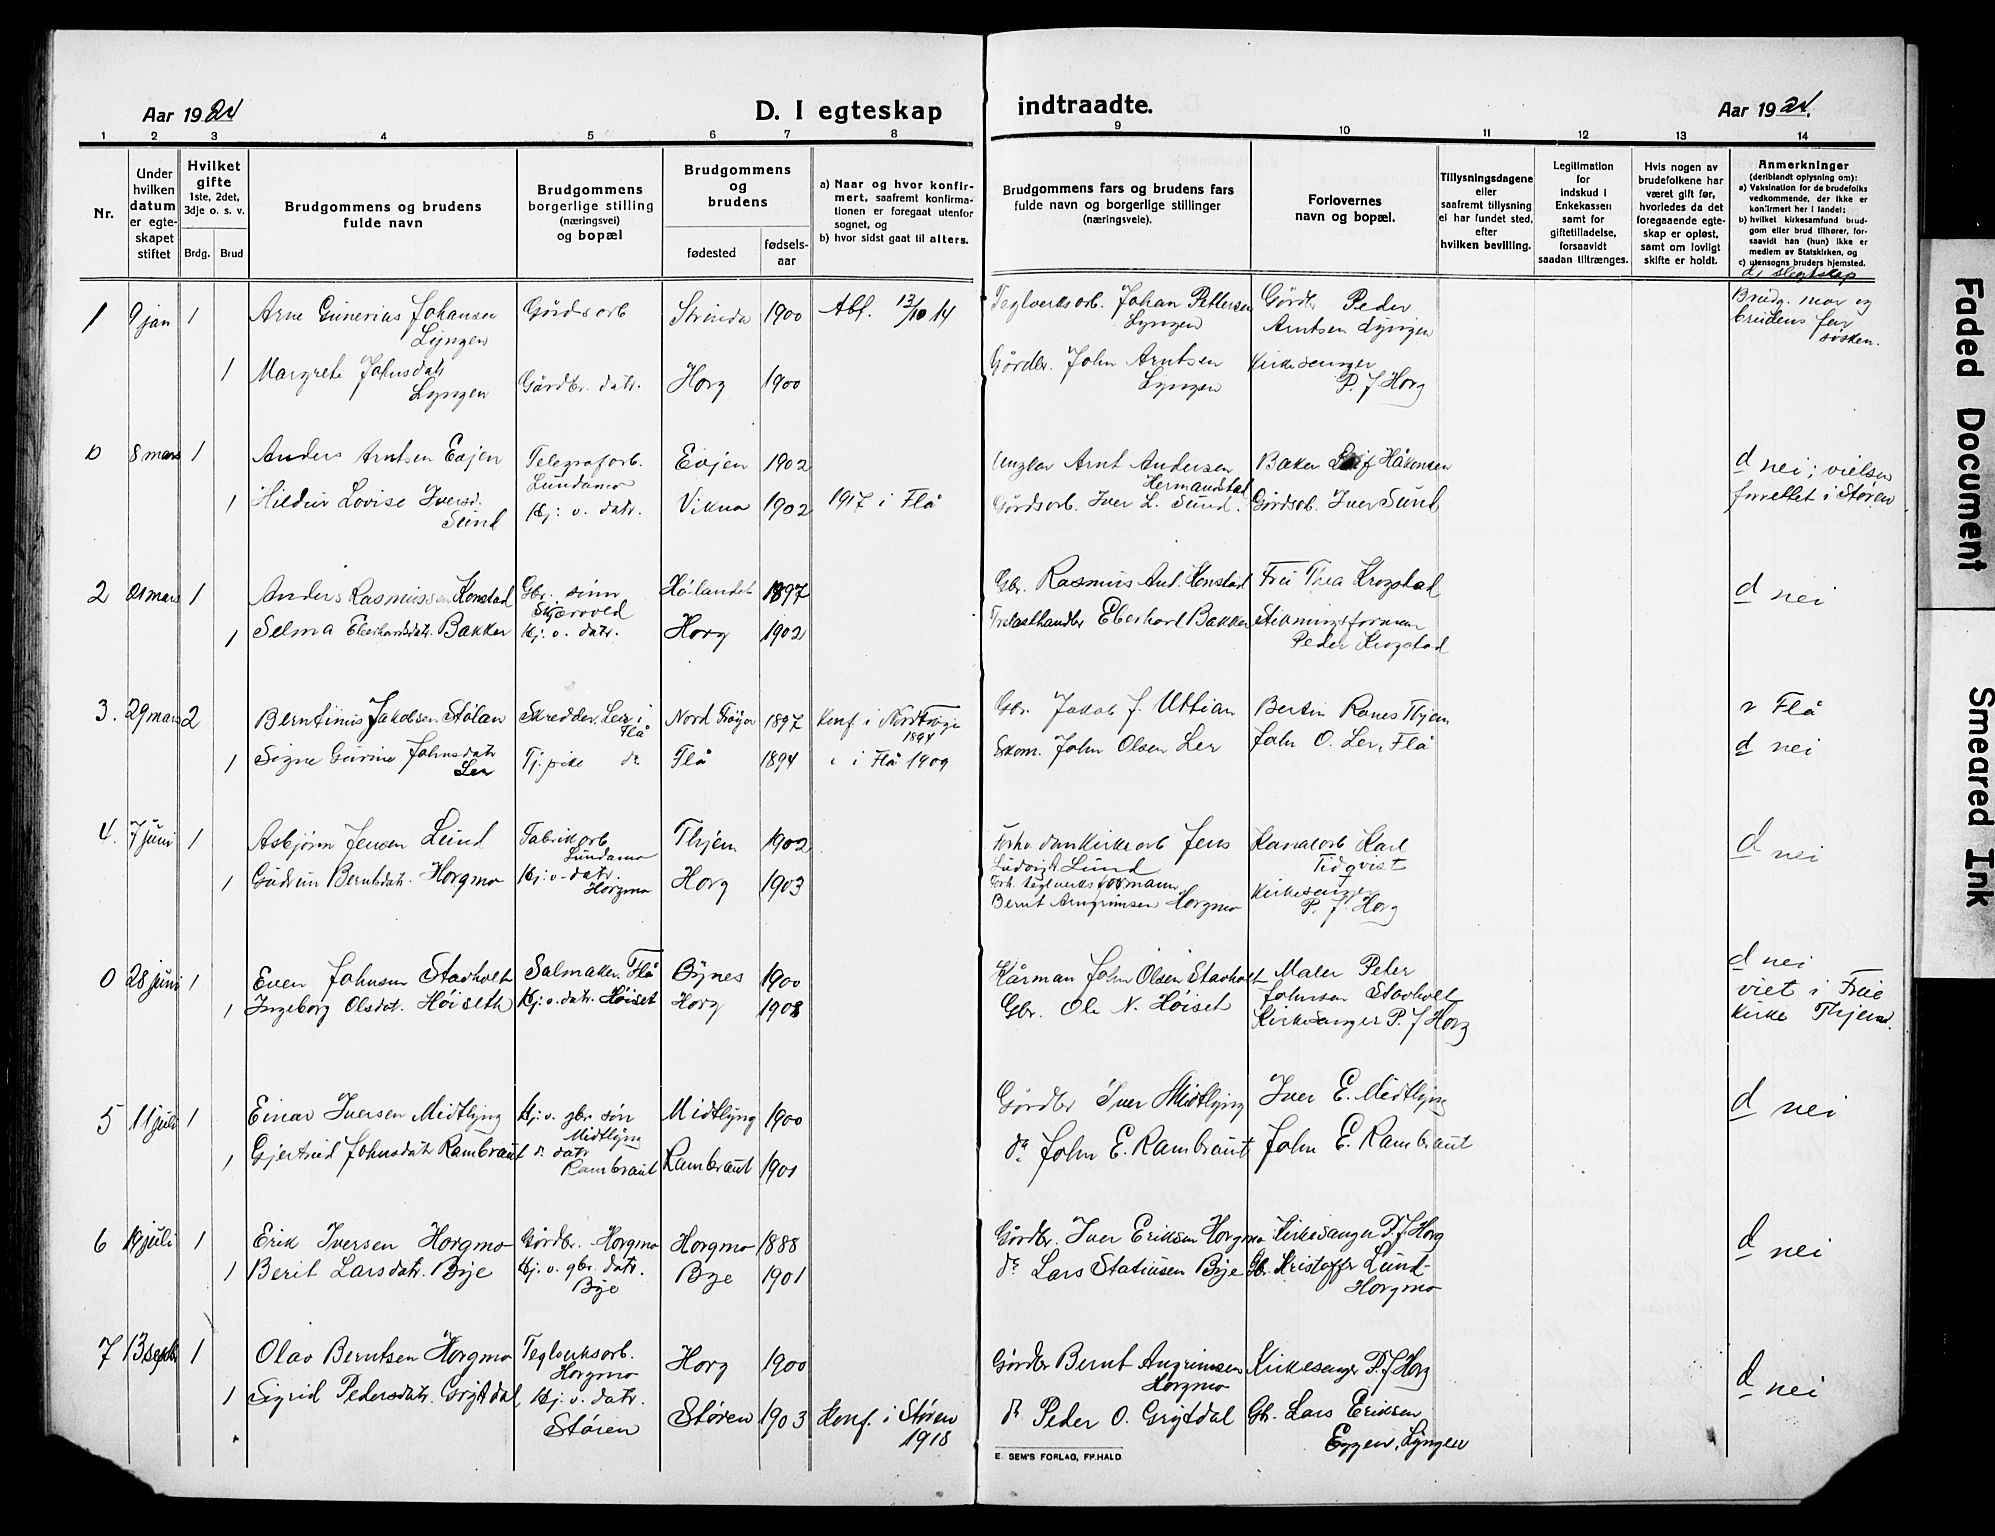 Aar 1924
D. I egteskap
indtraadte.
Aar 1924.
1 2 3 4 5 6 7 8 9 10 11 12 13 14
Nr.
Under hvilken datum er egte-skapet stiftet
Hvilket gifte
1ste, 2det, 3dje o. s. v.
Brdg. Brud
Brudgommens og brudens fulde navn
Brudgommens borgerlige stilling (næringsvei) og bopæl
Brudgommens og brudens
fødested
fødsels-aar
a) Naar og hvor konfir-mert, saafremt konfirma-tionen er foregaat utenfor sognet, og
b) hvor sidst gaat til alters.
Brudgommens fars og brudens fars fulde navn og borgerlige stillinger (næringsveie).
Forlovernes navn og bopæl.
Tillysningsdagene eller saafremt tillysning ei har fundet sted, efter hvilken bevilling.
Legitimation for indskud i Enkekassen samt for giftetilladelse, forsaavidt saadan tiltrænges.
Hvis nogen av brudefolkene har været gift før, hvorledes da det foregaaende egte-skap er opløst, samt om lovligt skifte er holdt.
Anmerkninger
(deriblandt oplysning om):
a) Vaksination for de brudefolks vedkommende, der ikke er konfirmert her i landet;
b) hvilket kirkesamfund brud-gom eller brud tilhører, for-saavidt han (hun) ikke er medlem av Statskirken, og
c) utensogns bruders hjemsted.
d) slegtskap
1 9 jan 1 Arne Gunerius Johansen Lyngen Gårdsarb Strinda 1900 13/10 14 Teglverksarb. Johan Pettersen Lyngen Gårdbr Peder Arntsen Lyngen Brudg. mor og brudens far søsken.
1 Margrete Johnsdatr Lyngen Gårdbr. datr. Horg 1900 Gårdbr. John Arntsen Lyngen Kirkesanger P. J Horg
0 8 mars 1 Anders Arntsen Evjen Telegrafarb. Lundamo Evjen 1902 Arnt Andersen Hermanstad Baker Leif Håkensen d nei; vielsen forrettet i Støren
1 Hildur Lovise Iversd. Sund Hj. v. datr. Vikna 1902 1917 i Flå Gårdsarb. Iver L. Sund. Gårdsarb. Iver Sund
2 21 mars 1 Anders Rasmussen Konstad Gbr. sønn Skjærvold Hølandet 1897 Gbr. Rasmus Ant. Konstad Fru Thea Krogstad d nei
1 Selma Eberhardsdatr. Bakker Hj. v. datr. Horg 1902 Trelasthandler Eberhard Bakken Stikningsforman Peder Krogstad
3. 29 mars 2 Berntinus Jakobsen Stølan Skredder, Ler i Flå Nord Frøya 1897 Konf i Nord Frøya Gbr. Jakob J. Uttian Bertin Ranes Thjem Flå
1 Signe Gurine Johnsdatr Ler Tj. pike do Flå 1894 i Flå 1909 Skom. John Olsen Ler John O. Ler, Flå d nei
4. 7 juni 1 Asbjørn Jensen Lund Fabrikarb. Lundamo Thjem 1902 Jens Ludvigt Lund Kanalarb Karl Tidqvist d nei
1 Gudrun Berntsdatr. Horgmo Hj. v. datr. Horgmo Horg 1903 Forh. teglverksformann Bernt Arngrimsen Horgmo Kirkesanger P. J. Horg
0 28 juni 1 Even Johnsen Stavholt Salmaker, Flå Bynes 1900 Kårman John Olsen Stavholt Maler Peter Johnsen Stavholt d nei viet i Frue kirke Thjem.
1 Ingeborg Olsdat. Høiseth Hj. v. datr. Høiset Horg Gbr. Ole N. Høiset Kirkesanger P. J Horg
5 11 juli 1 Einar Iversen Midtlyng Hj. v. gbr. søn Midtlyng Midtlyng 1900 Gårdbr Iver Midtlyng Iver E. Midtlyng d nei
1 Gjertrud Johnsdatr Rambraut do datr Rambraut Rambraut 1901 do John E. Rambraut John E. Rambraut
6 19 juli 1 Erik Iversen Horgmo Gårdbr. Horgmo Horgmo 1888 Gårdbr. Iver Eriksen Horgmo Kirkesanger P. J Horg d nei
1 Berit Larsdatr. Bye Hj. v. gbr. datr. Bye Bye 1901 do Lars Statinsen Bye Gb. Kristoffer Lund Horgmo
7 13 septr 1 Olav Berntsen Horgmo Teglverksarb. Horgmo Horg 1900 Gårdbr Bernt Angrimsen Horgmo Kirkesanger P. J Horg d nei
1 Sigrid Pedersdatr. Grytdal Hj. v. datr. Støren Støren 1903 Konf. i Støren 1918 do Peder O. Grytdal Gb. Lars Eriksen Eggen, Lyngen
E. SEM'S FORLAG, FR.HALD
Faded Document
Smeared Ink